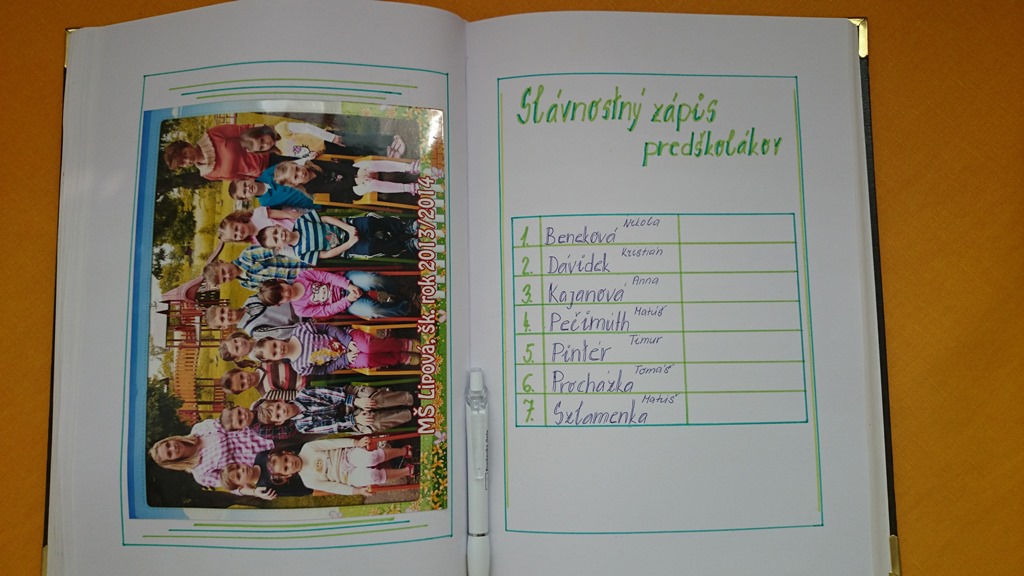 MŠ Lipová, šk. rok 2013/2014
Slávnostný zápis
predškolákov
1. Beneková Nikola
2. Dávidek Kristian
3. Kajanová Anna
4. Pečimúth Matúš
5. Pintér Timur
6. Procházka Tomáš
7. Sztamenka Matúš